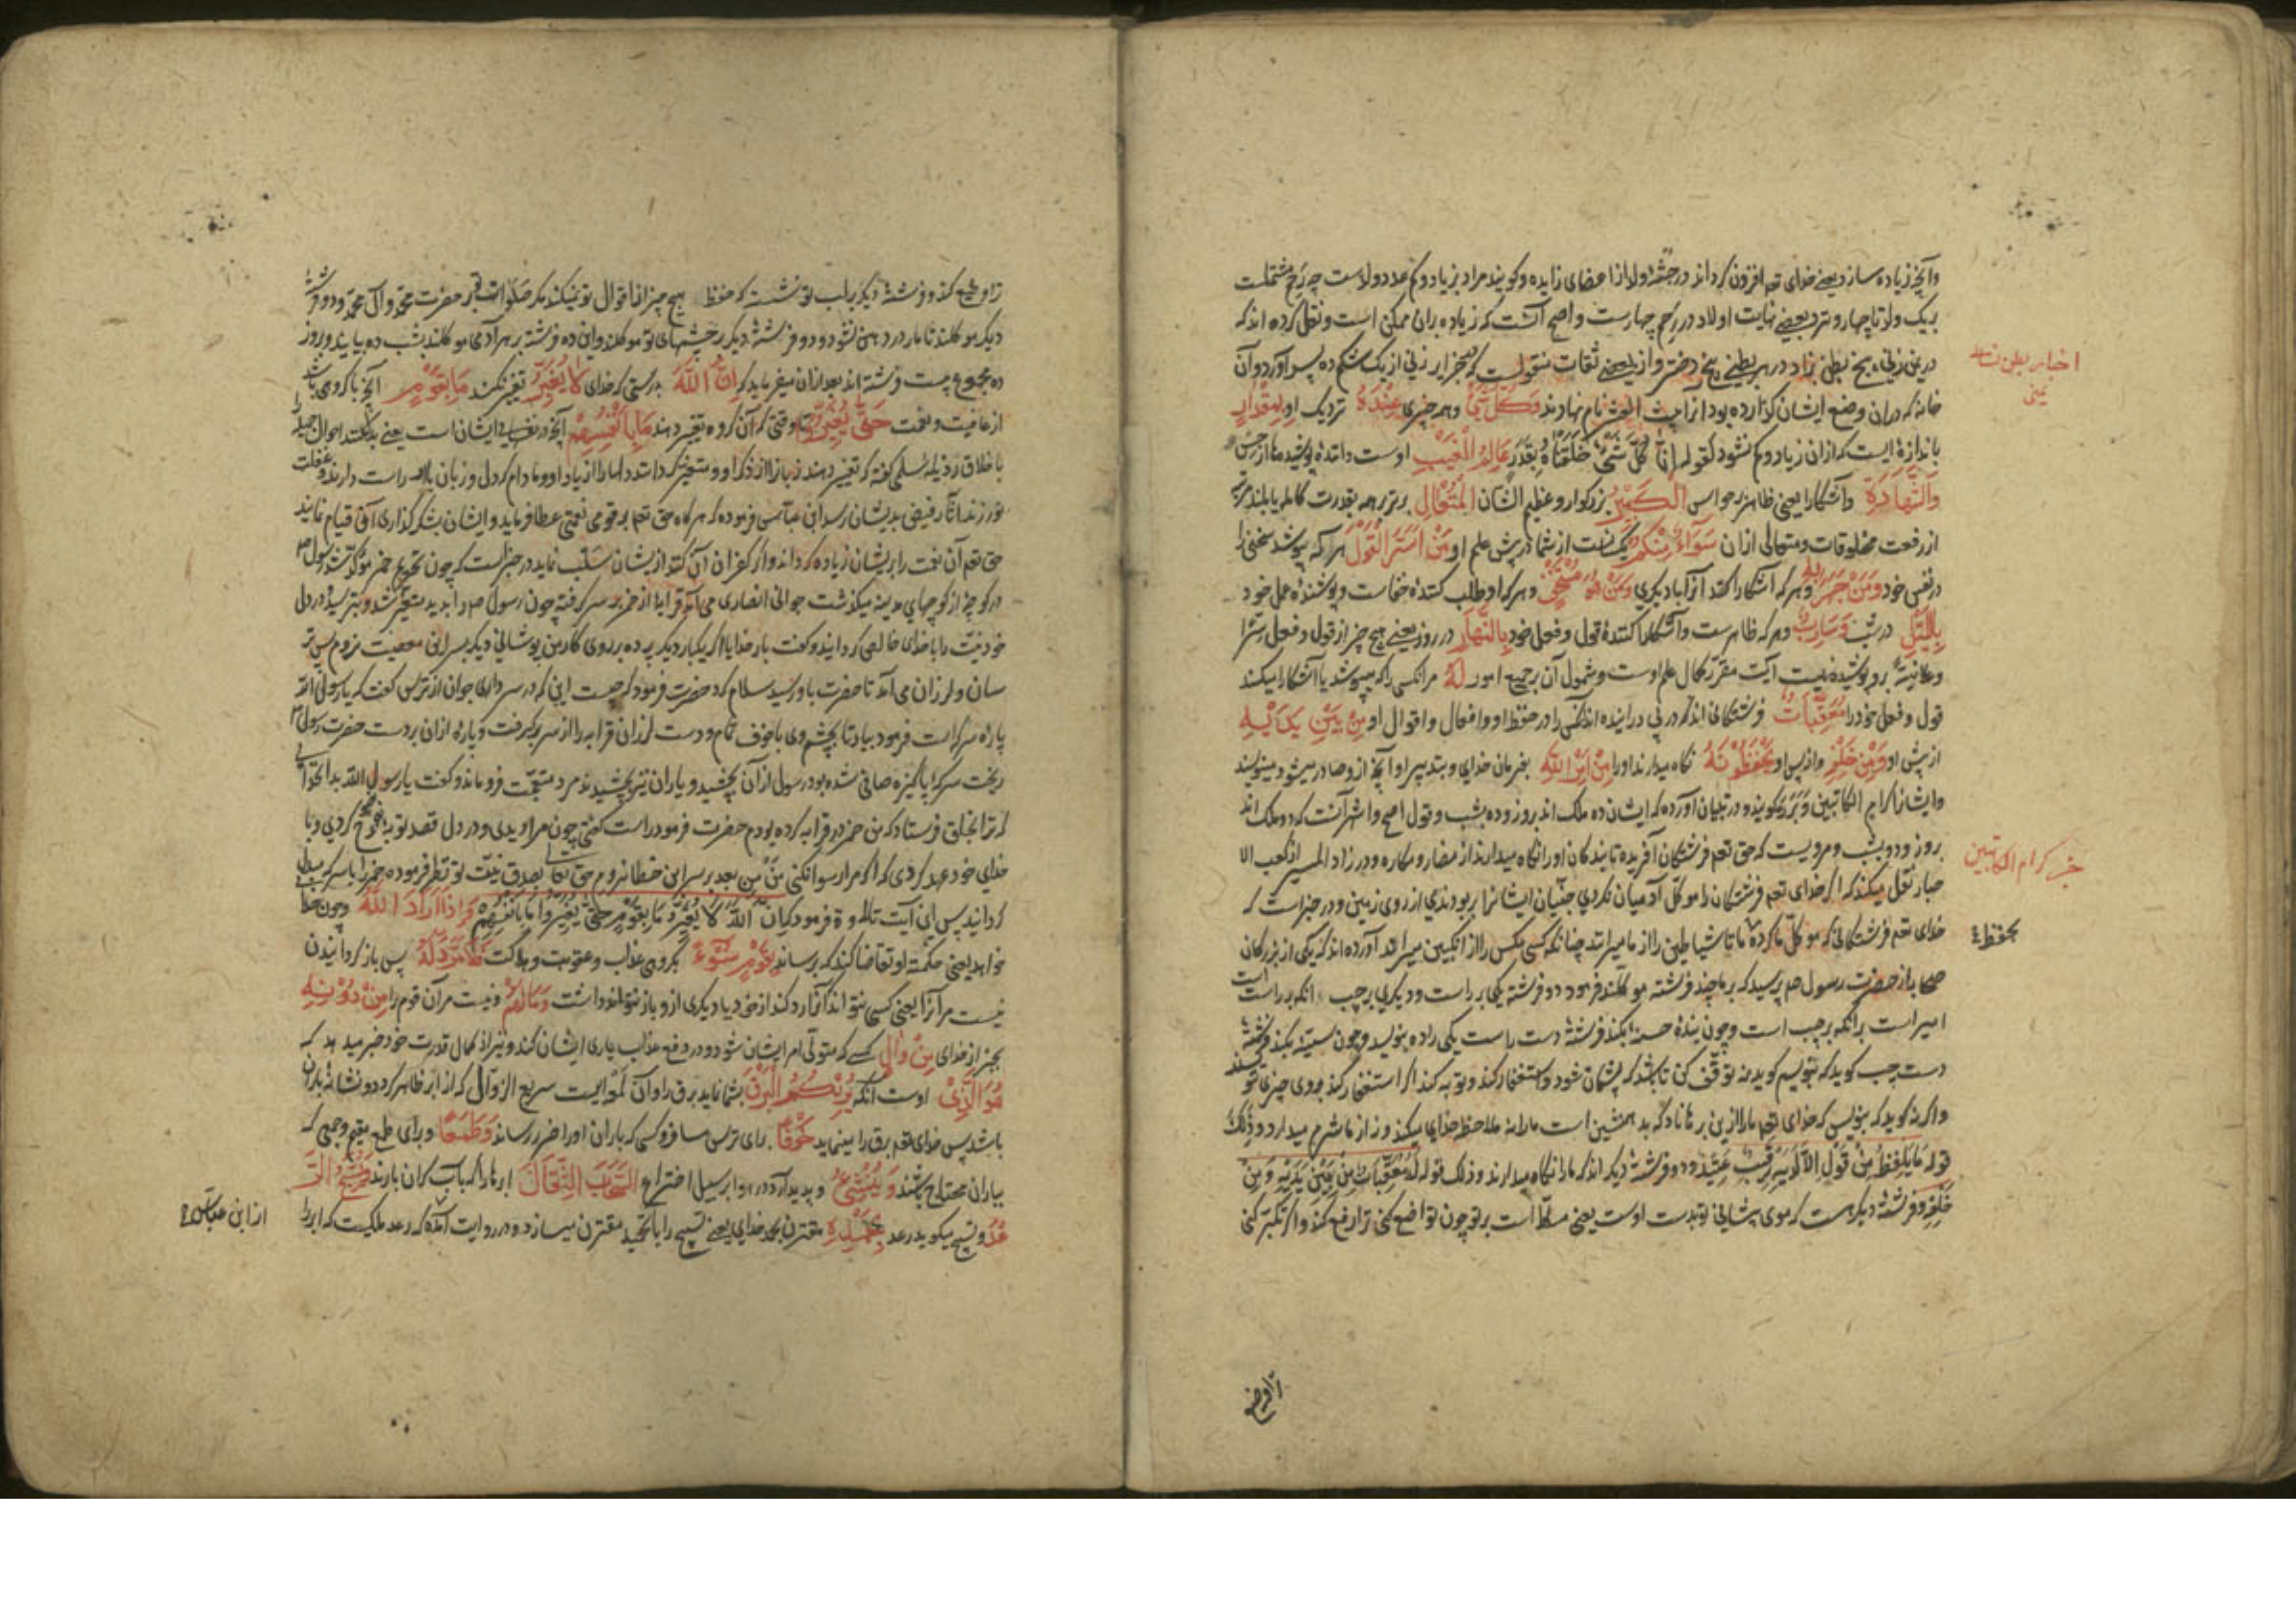 وآنچه زیاده سازد یعنی خدای تعم افزون کرداند در جثهٔ ولد از اعضای زایده وکویند مراد بزیاد وکم عدد ولدست چه رحم مشتملست
بیک ولد تا چهار ونزد بعضی نهایت اولاد در رحم چهارست واصح آنست که زیاده بران ممکن است ونقل کرده اند که
در یمن زنی پنج بطن بزاد در هر بطنی پنج دختر واز بعضی ثقات منقولست که بجزایر زنی از یک شکم ده پسر آورد وآن
خانه که دران وضع ایشان کرده بود آنرا نام نهادند وَكُلُّ شَيْءٍ وهمه چیزی عِنْدَهُ نزدیک او بِمِقْدَارٍ
باندازهٔ ایست که ازان زیاد وکم نشود کقوله إِنَّا كُلَّ شَيْءٍ خَلَقْنَاهُ بِقَدَرٍ عَالِمُ الْغَيْبِ اوست دانندهٔ پوشیدها از حس
وَالشَّهَادَةِ وآشکارا یعنی ظاهر بر حواس الْكَبِيْرُ بزرکوار وعظیم الشان الْمُتَعَالِ برتر بر همه بقدرت کامله یا بلند مرتبه
از رفعت مخلوقات ومتعالی ازان سَوَآءٌ مِنْكُمْ یکسانست از شما در پیش علم او مَنْ اَسَرَّ الْقَوْلَ هر که بپوشد سخنی را
در نفس خود وَمَنْ جَهَرَ بِهِ وهر که آشکارا کند آنرا با دیکری وَمَنْ هُوَ مُسْتَخْفٍ وهر که او طلب کنندهٔ خفاست وپوشندهٔ عمل خود
بِالَّيْلِ در شب وَسَارِبٌ وهر که ظاهرست وآشکارا کنندهٔ قول وفعل خود بِالنَّهَارِ در روز یعنی هیچ چیز از قول وفعل سرّا
وعلانیةً برو پوشیده نیست آیت مقرر کمال علم اوست وشمول آن بر جمیع امور لَهُ مرانکس را که میپوشد یا آشکارا میکند
قول وفعل خود را مُعَقِّبَاتٌ فرشتکانی اند که در پی در اینده اند آنکس را در حفظ او وافعال واقوال او مِنْ بَيْنِ يَدَيْهِ
از پیش او وَمِنْ خَلْفِهِ واز پس او يَحْفَظُوْنَهُ نکاه میدارند اورا مِنْ اَمْرِ اللّٰهِ بفرمان خدای وبتدبیر او آنچه ازو صادر میشود مینویسند
وایشانرا کرام الکاتبین وبرره کویند ودر تبیان آورده که ایشان ده ملک اند بروز وده بشب وقول اصح واشهر آنست که دو ملک اند
بروز ودو بشب ومرویست که حق تعم فرشتکان آفریده تا بندکان اورا نکاه میدارند از مضار ومکاره ودر زاد المسیر از کعب الا
حبار نقل میکند که اکر خدای تعم فرشتکان را موکل آدمیان نکردی جنّیان ایشانرا بربودندی از روی زمین ودر خبر است که
خدای تعم فرشتکانی که موکل ما کرده ما تا شیاطین را از ما میرانند چنانکه کسی مکس را از انکبین میراند آورده اند که یکی از بزرکان
صحابه از حضرت رسول صم پرسید که بر ما چند فرشته موکلند فرمود دو فرشته یکی بر راست ودیکری بر چپ انکه بر راست است
امیر است بر انکه بر چپ است وچون بندهٔ حسنهٔ بکند فرشتهٔ دست راست یکی را ده بنویسد وچون سیئهٔ بکند فرشتهٔ
دست چپ کوید که بنویسم کوید نه توقف کن تا باشد که پشیمان شود واستغفار کند وتوبه کند اکر استغفار کند بروی چیزی ننویسند
واکر نه کوید که بنویس که خدای تعم مارا ازین برهاناد که بد همنشین است مارا نه ملاحظه خدای میکند ونه از ما شرم میدارد وذلک
قوله مَا يَلْفِظُ مِنْ قَوْلٍ اِلَّا لَدَيْهِ رَقِيْبٌ عَتِيْدٌ ودو فرشتهٔ دیکر اند که مارا نکاه میدارند وذلک قوله لَهُ مُعَقِّبَاتٌ مِنْ بَيْنِ يَدَيْهِ وَمِنْ
خَلْفِهِ وفرشتهٔ دیکر هست که موی پیشانی تو بدست اوست یعنی مسلّط است بر تو چون تواضع کنی ترا رفع کند واکر تکبر کنی
اخبار بطن
یمنی
خبر کرام الکاتبین
یحفظ
ترا وضع کند وفرشتهٔ دیکر بر لب تو نشسته که حفظ هیچ چیز از اقوال تو نمیکند مکر صلوات بر حضرت محمد وآل محمد ودو فرشتهٔ
دیکر موکلند تا مار در دهن نشود ودو فرشتهٔ دیکر بر چشمهای تو موکلند واین ده فرشته بر هر آدمی موکلند بشب ده بیایند وبروز
ده مجموع بیست فرشته اند بعد ازان میفرماید که اِنَّ اللّٰهَ بدرستی که خدای لَا يُغَيِّرُ تغیر نکند مَا بِقَوْمٍ آنچه با کروهی باشد
از عافیت ونعمت حَتّٰى يُغَيِّرُوا تا وقتی که آن کروه تغیر دهند مَا بِاَنْفُسِهِمْ آنچه در نفسهای ایشان است یعنی بدل کنند احوال جمیله را
باخلاق رذیله سلمی کفته که تغییر دهند زبانرا از ذکر او ومتغیر کردانند دلها را از یاد او ومادام که دل وزبان راست دارند وغفلت
نورزند آثار فیض بدیشان رسد ابن عباس فرموده که هر کاه حق تعم بر قومی نعمتی عطا فرماید وایشان بشکر کذاری آن قیام نمایند
حق تعم آن نعمت را بر ایشان زیاده کرداند واکر کفران آن کنند ازیشان سلب نماید در خبر است که چون تحریم خمر مؤکد شد رسول صم
در کوچهٔ از کوچهای مدینه میکذشت جوانی انصاری می آمد قرابهٔ از خمر بر سر کرفته چون رسول صم را بدید متغیر شد وبترسید ودر دل
خود نیت را با خدای خالص کردانید وکفت بار خدایا اکر یکبار دیکر پرده بر روی کار من پوشانی دیکر بسر این معصیت نروم پس تر
سان ولرزان می آمد تا حضرت باو رسید سلام کرد حضرت فرمود که چیست این که در سر داری جوان از ترس کفت که یا رسول الله
پارهٔ سرکه است فرمود بیار تا بچشم وی با خوف تمام ودست لرزان قرابه را از سر برکرفت وپارهٔ ازان بر دست حضرت رسول صم
ریخت سرکهٔ پاکیزه صافی شده بود رسول ازان بچشید ویاران نیز بچشیدند مرد متعجب فرو ماند وکفت یا رسول الله بدانخدایی
که ترا بخلق فرستاد که من خمر در قرابه کرده بودم حضرت فرمود راست کفتی چون مرا دیدی ودر دل قصد توبه نصوح کردی وبا
خدای خود عهد کردی که اکر مرا رسوا نکنی من بعد بر سر این خطا نروم حق تعالی بصدق نیت تو نظر فرموده خمر را با سرکه مبدل
کردانید پس این آیت تلاوة فرمود که اِنَّ اللّٰهَ لَا يُغَيِّرُ مَا بِقَوْمٍ حَتّٰى يُغَيِّرُوا مَا بِاَنْفُسِهِمْ وَاِذَا اَرَادَ اللّٰهُ وچون خدا
خواهد یعنی حکمت او تقاضا کند که برساند بِقَوْمٍ سُوْءً بکروهی عذاب وعقوبت وهلاکت فَلَا مَرَدَّ لَهُ پس باز کردانیدن
نیست مر آنرا یعنی کسی نتواند آنرا رد کند از خود یا دیکری ازو باز نتواند داشت وَمَا لَهُمْ ونیست مر آن قوم را مِنْ دُوْنِهِ
بجز از خدای مِنْ وَالٍ کسی که متولی امر ایشان شود ودر دفع عذاب یاری ایشان کند ونیز از کمال قدرت خود خبر میدهد که
هُوَ الَّذِيْ اوست آنکه يُرِيْكُمُ الْبَرْقَ بشما نماید برق را وآن لمعه ایست سریع الزوال که از ابر ظاهر کردد ونشانهٔ باران
باشد پس خدای تعم برق را مینماید خَوْفًا برای ترس مسافر وکسی که باران اورا ضرر رساند وَطَمَعًا وبرای طمع مقیم وجمعی که
بباران محتاج باشند وَيُنْشِئُ وپدید آرد در هوا بر سبیل اختراع السَّحَابَ الثِّقَالَ ابرها را که بآب کران بارند وَيُسَبِّحُ الرَّ
عْدُ وتسبیح میکوید رعد بِحَمْدِهِ مقترن بحمد خدای یعنی تسبیح را با تحمید مقترن میسازد ودر روایت آمده که رعد ملکیست که ابر را
از ابن عباس